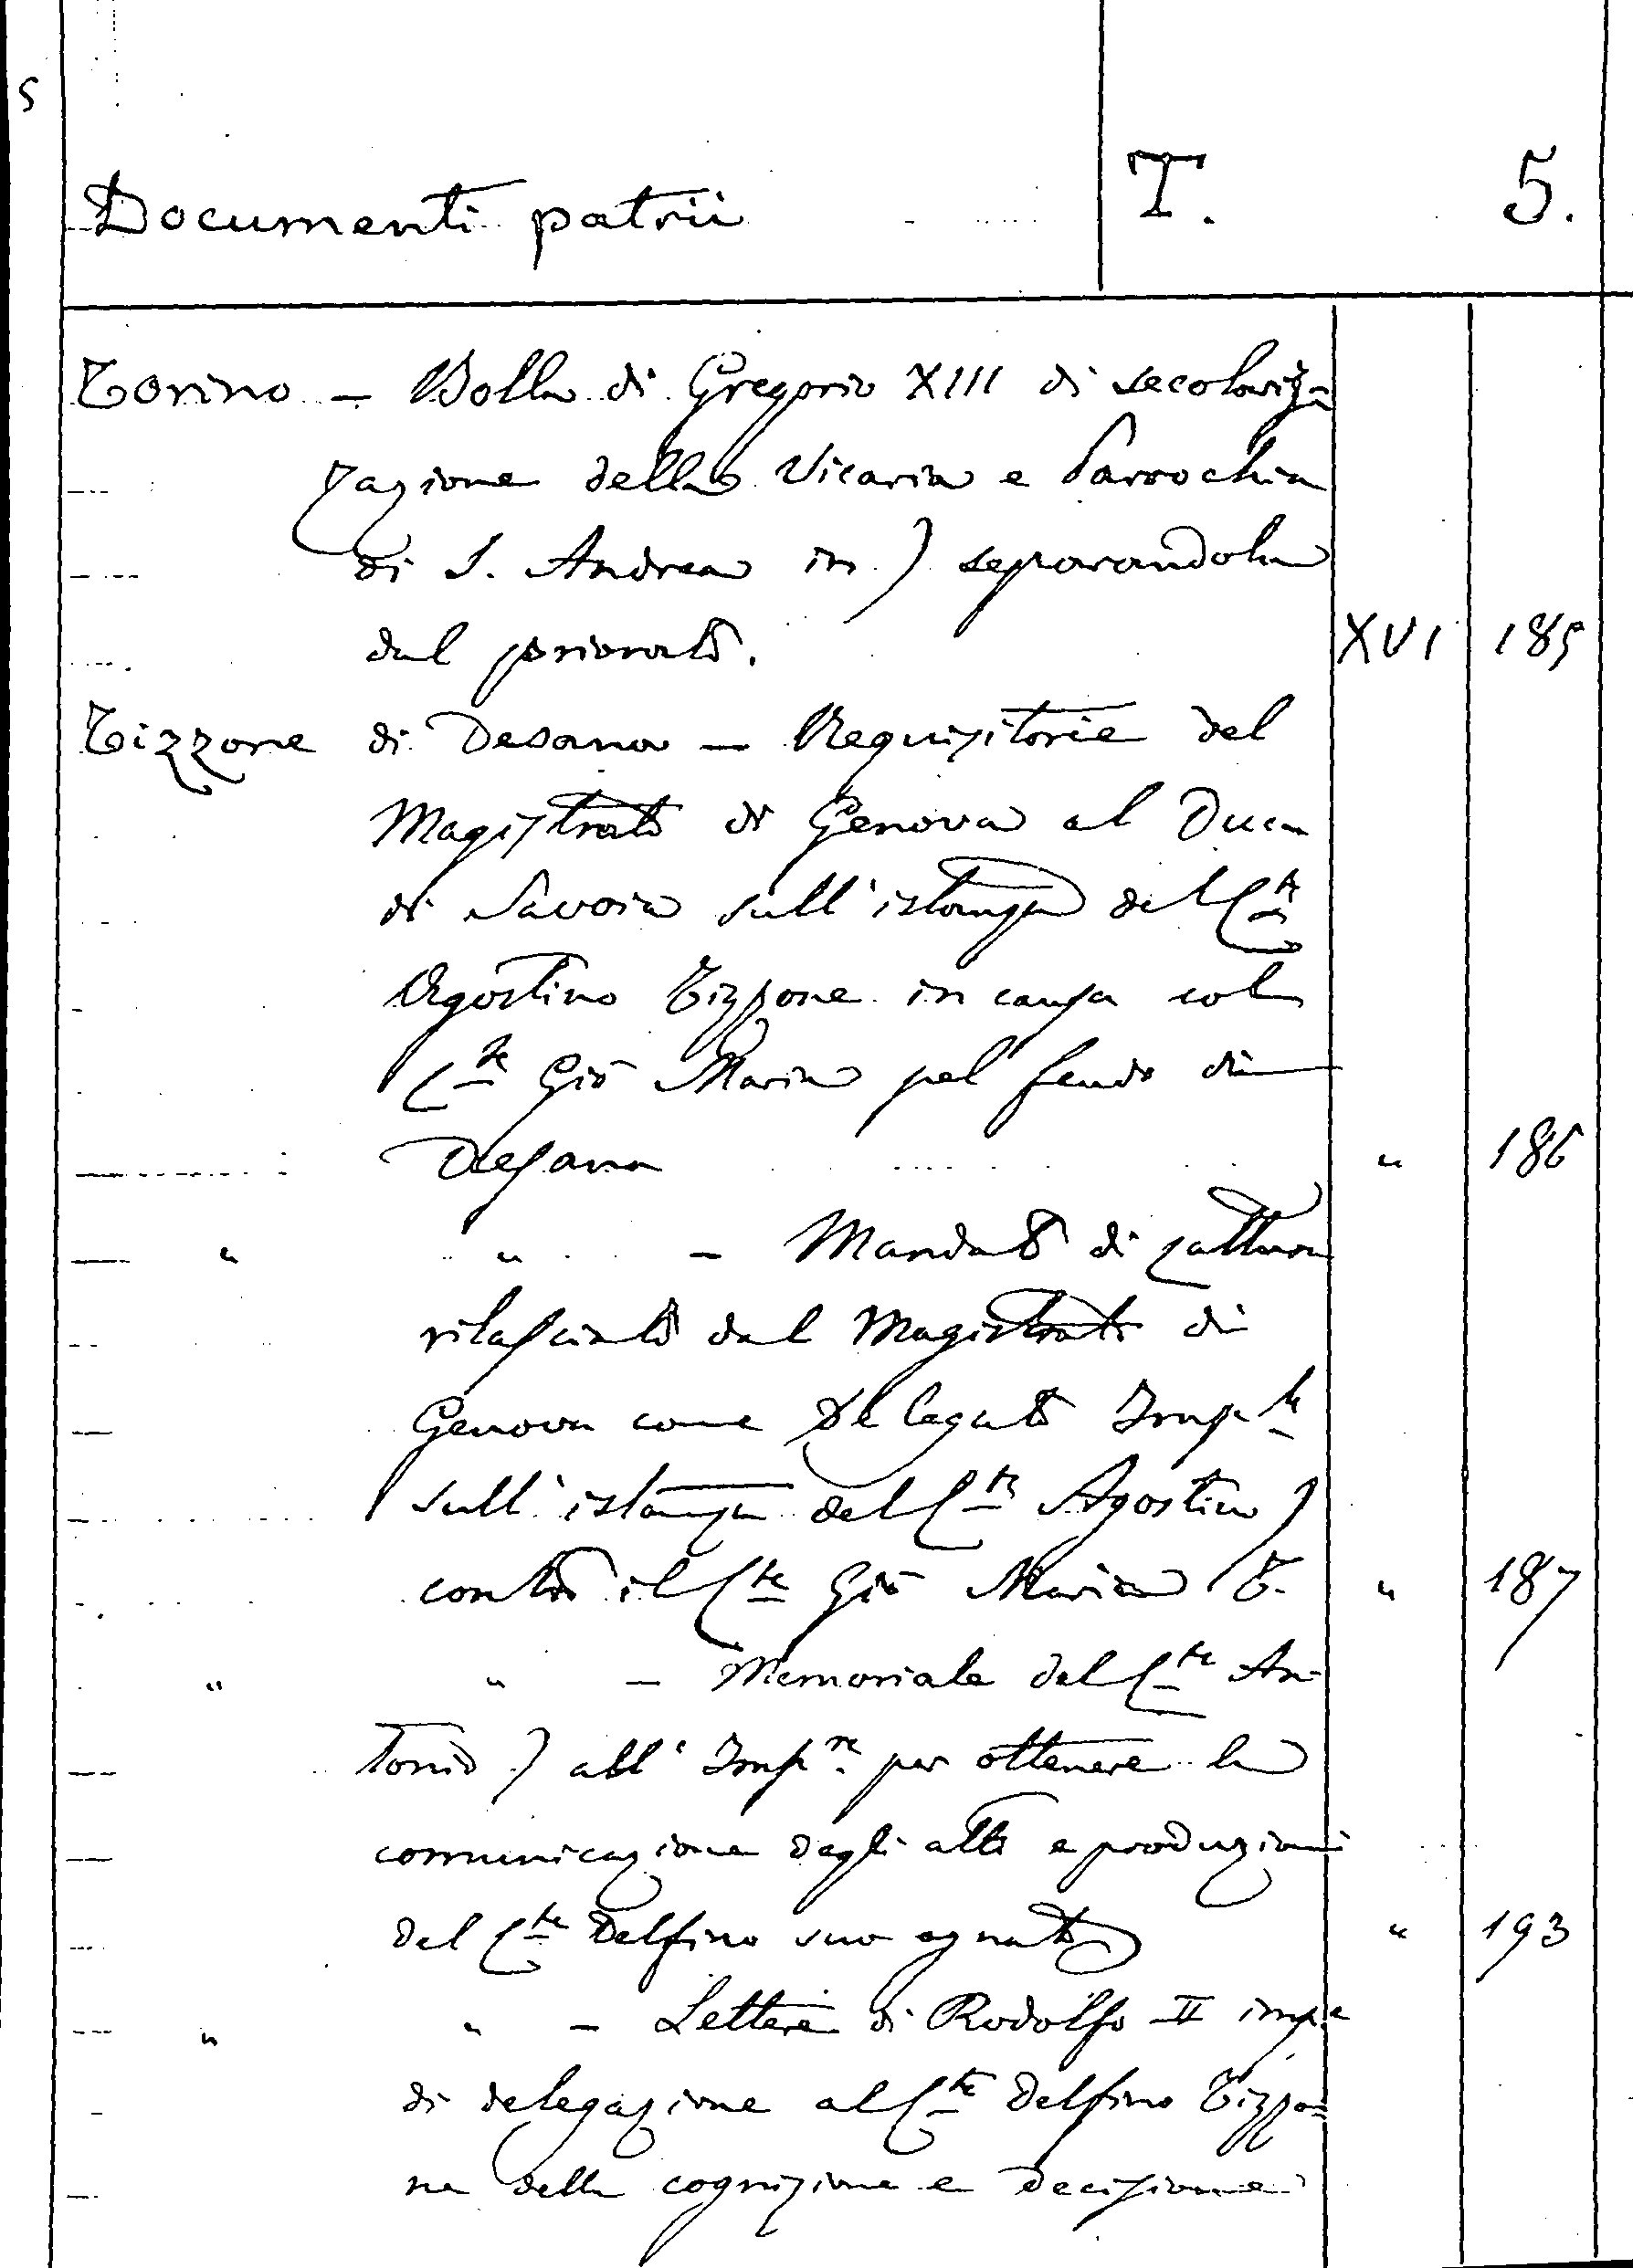 5
Documenti patrii T. 5.
Torino – Bolla di Gregorio XIII di secolariz=
zazione della Vicaria e Parrochia
di S. Andrea in ) separandola
dal priorato. XVI 185
Tizzone di Desana – Requisitorie del
Magistrato di Genova al Duca
di Savoia sull'istanza del Cte
Agostino Tizzone in causa col
Cte Gio Maria pel feudo di
Desana " 186
" " – Mandato di cattura
rilasciato dal Magistrato di
Genova come Delegato Imple
sull'istanza del Cte Agostino )
contro il Cte Gio Maria T. " 187
" " – Memoriale del Cte An-
tonio ) all'Impre per ottenere la
comunicazione degli atti e produzioni
del Cte Delfino suo agnato " 193
" " – Lettere di Rodolfo II imp.e
di delegazione al Cte Delfino Tizzo=
ne della cognizione e decisione